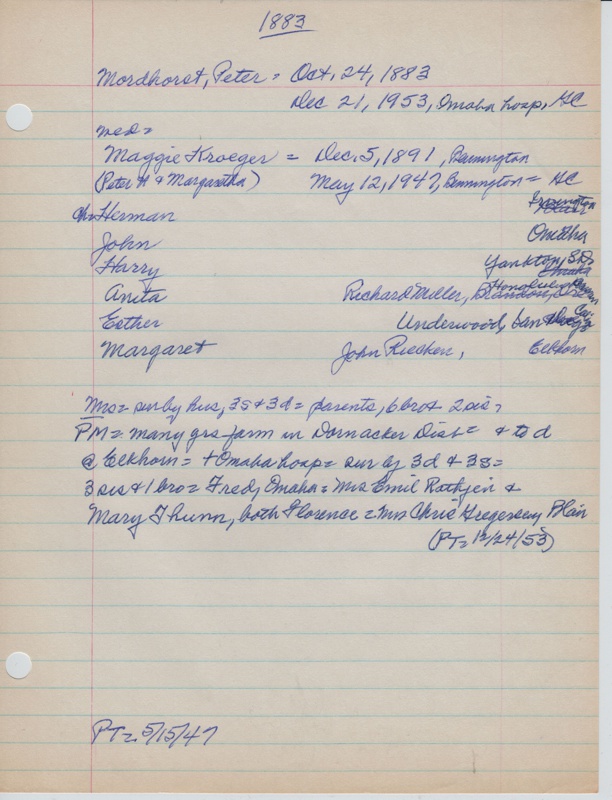 1883
Mordhorst, Peter = Oct. 24, 1883
Dec 21, 1953, Omaha hosp, HC
wed =
Maggie Kroeger = Dec. 5, 1891, Bennington
(Peter H & Margaretha) May 12, 1947, Bennington = HC
Irvington
ch = Herman
Omaha
John
Yankton, S.D.
Harry
Anita Richard Miller, Brandon,
Esther Underwood, San Diego, Ca.
Margaret John Riecken, Elkhorn
Mrs = sur by hus, 3s & 3d = parents, 6 bro & 2 sis =
PM = many yrs farm in Dornacker Dist = & to d
@ Elkhorn = + Omaha hosp = sur by 3d & 3s =
3 sis & 1 bro = Fred, Omaha = Mrs Emil Rathjen &
Mary Thunn, both Florence = Mrs Chris Gregersen, Plain
(PT = 12/24/53)
PT = 5/15/47